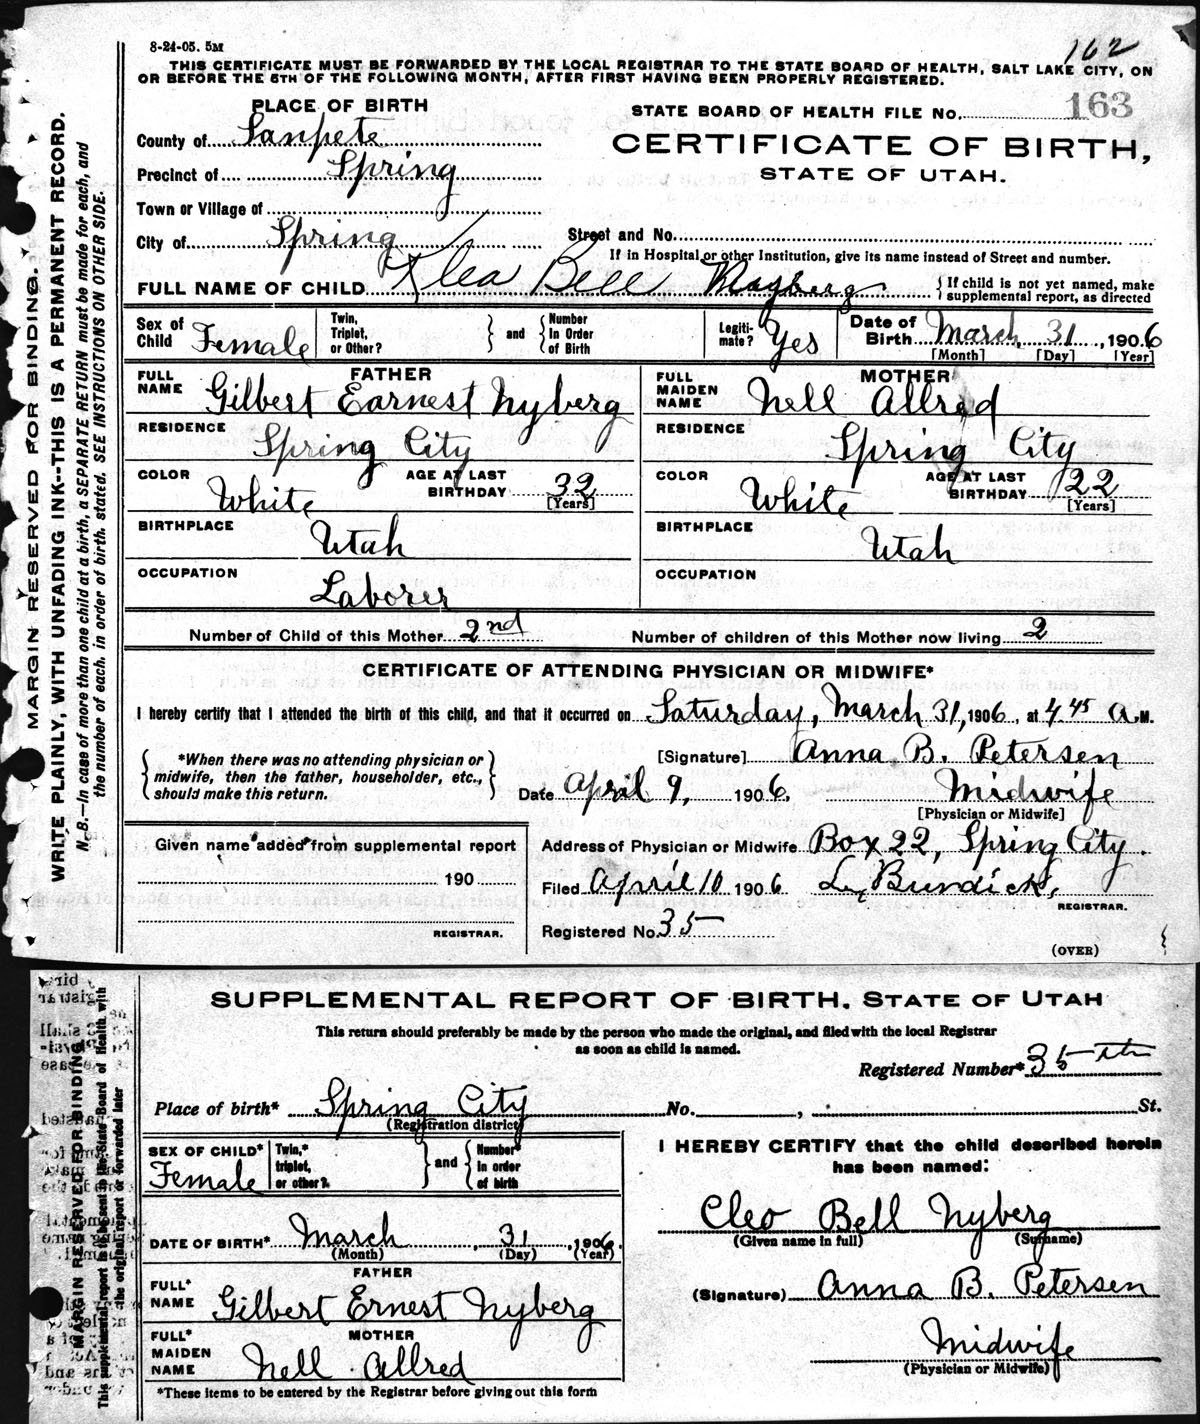 8-24-05. 5M
162
THIS CERTIFICATE MUST BE FORWARDED BY THE LOCAL REGISTRAR TO THE STATE BOARD OF HEALTH, SALT LAKE CITY, ON
OR BEFORE THE 5TH OF THE FOLLOWING MONTH, AFTER FIRST HAVING BEEN PROPERLY REGISTERED.
PLACE OF BIRTH
STATE BOARD OF HEALTH FILE No. 163
County of Sanpete
CERTIFICATE OF BIRTH,
Precinct of Spring
STATE OF UTAH.
Town or Village of
City of Spring
Street and No.
If in Hospital or other Institution, give its name instead of Street and number.
FULL NAME OF CHILD Klea Bell Nyberg
{If child is not yet named, make
supplemental report, as directed
Sex of Child Female
Twin, Triplet, or Other? } and { Number In Order of Birth
Legitimate? Yes
Date of Birth March 31, 1906
[Month] [Day] [Year]
FATHER
FULL NAME Gilbert Earnest Nyberg
RESIDENCE Spring City
COLOR White
AGE AT LAST BIRTHDAY 32
[Years]
BIRTHPLACE Utah
OCCUPATION Laborer
MOTHER
FULL MAIDEN NAME Nell Allred
RESIDENCE Spring City
COLOR White
AGE AT LAST BIRTHDAY 22
[Years]
BIRTHPLACE Utah
OCCUPATION
Number of Child of this Mother 2nd
Number of children of this Mother now living 2
CERTIFICATE OF ATTENDING PHYSICIAN OR MIDWIFE*
I hereby certify that I attended the birth of this child, and that it occurred on Saturday, March 31, 1906, at 4 45 A.M.
{ *When there was no attending physician or
midwife, then the father, householder, etc.,
should make this return. }
[Signature] Anna B. Petersen
Date April 9, 1906. Midwife
[Physician or Midwife]
Given name added from supplemental report
190
REGISTRAR.
Address of Physician or Midwife Box 22, Spring City.
Filed April 10 1906 L Bundick,
REGISTRAR.
Registered No. 35
(OVER)
MARGIN RESERVED FOR BINDING.
WRITE PLAINLY, WITH UNFADING INK--THIS IS A PERMANENT RECORD.
N. B.—In case of more than one child at a birth, a SEPARATE RETURN must be made for each, and
the number of each, in order of birth, stated. SEE INSTRUCTIONS ON OTHER SIDE.
SUPPLEMENTAL REPORT OF BIRTH. STATE OF UTAH
This return should preferably be made by the person who made the original, and filed with the local Registrar
as soon as child is named.
Registered Number* 35th
Place of birth* Spring City No. , St.
(Registration district)
SEX OF CHILD* Female
Twin,* triplet, or other? } and { Number* in order of birth
DATE OF BIRTH* March 31, 1906.
(Month) (Day) (Year)
FATHER
FULL* NAME Gilbert Ernest Nyberg
MOTHER
FULL* MAIDEN NAME Nell Allred
*These items to be entered by the Registrar before giving out this form
I HEREBY CERTIFY that the child described herein
has been named:
Cleo Bell Nyberg
(Given name in full) (Surname)
(Signature) Anna B. Petersen
Midwife
(Physician or Midwife)
MARGIN RESERVED FOR BINDING
This supplemental report is to be sent in to the State Board of Health with
the original report or forwarded later